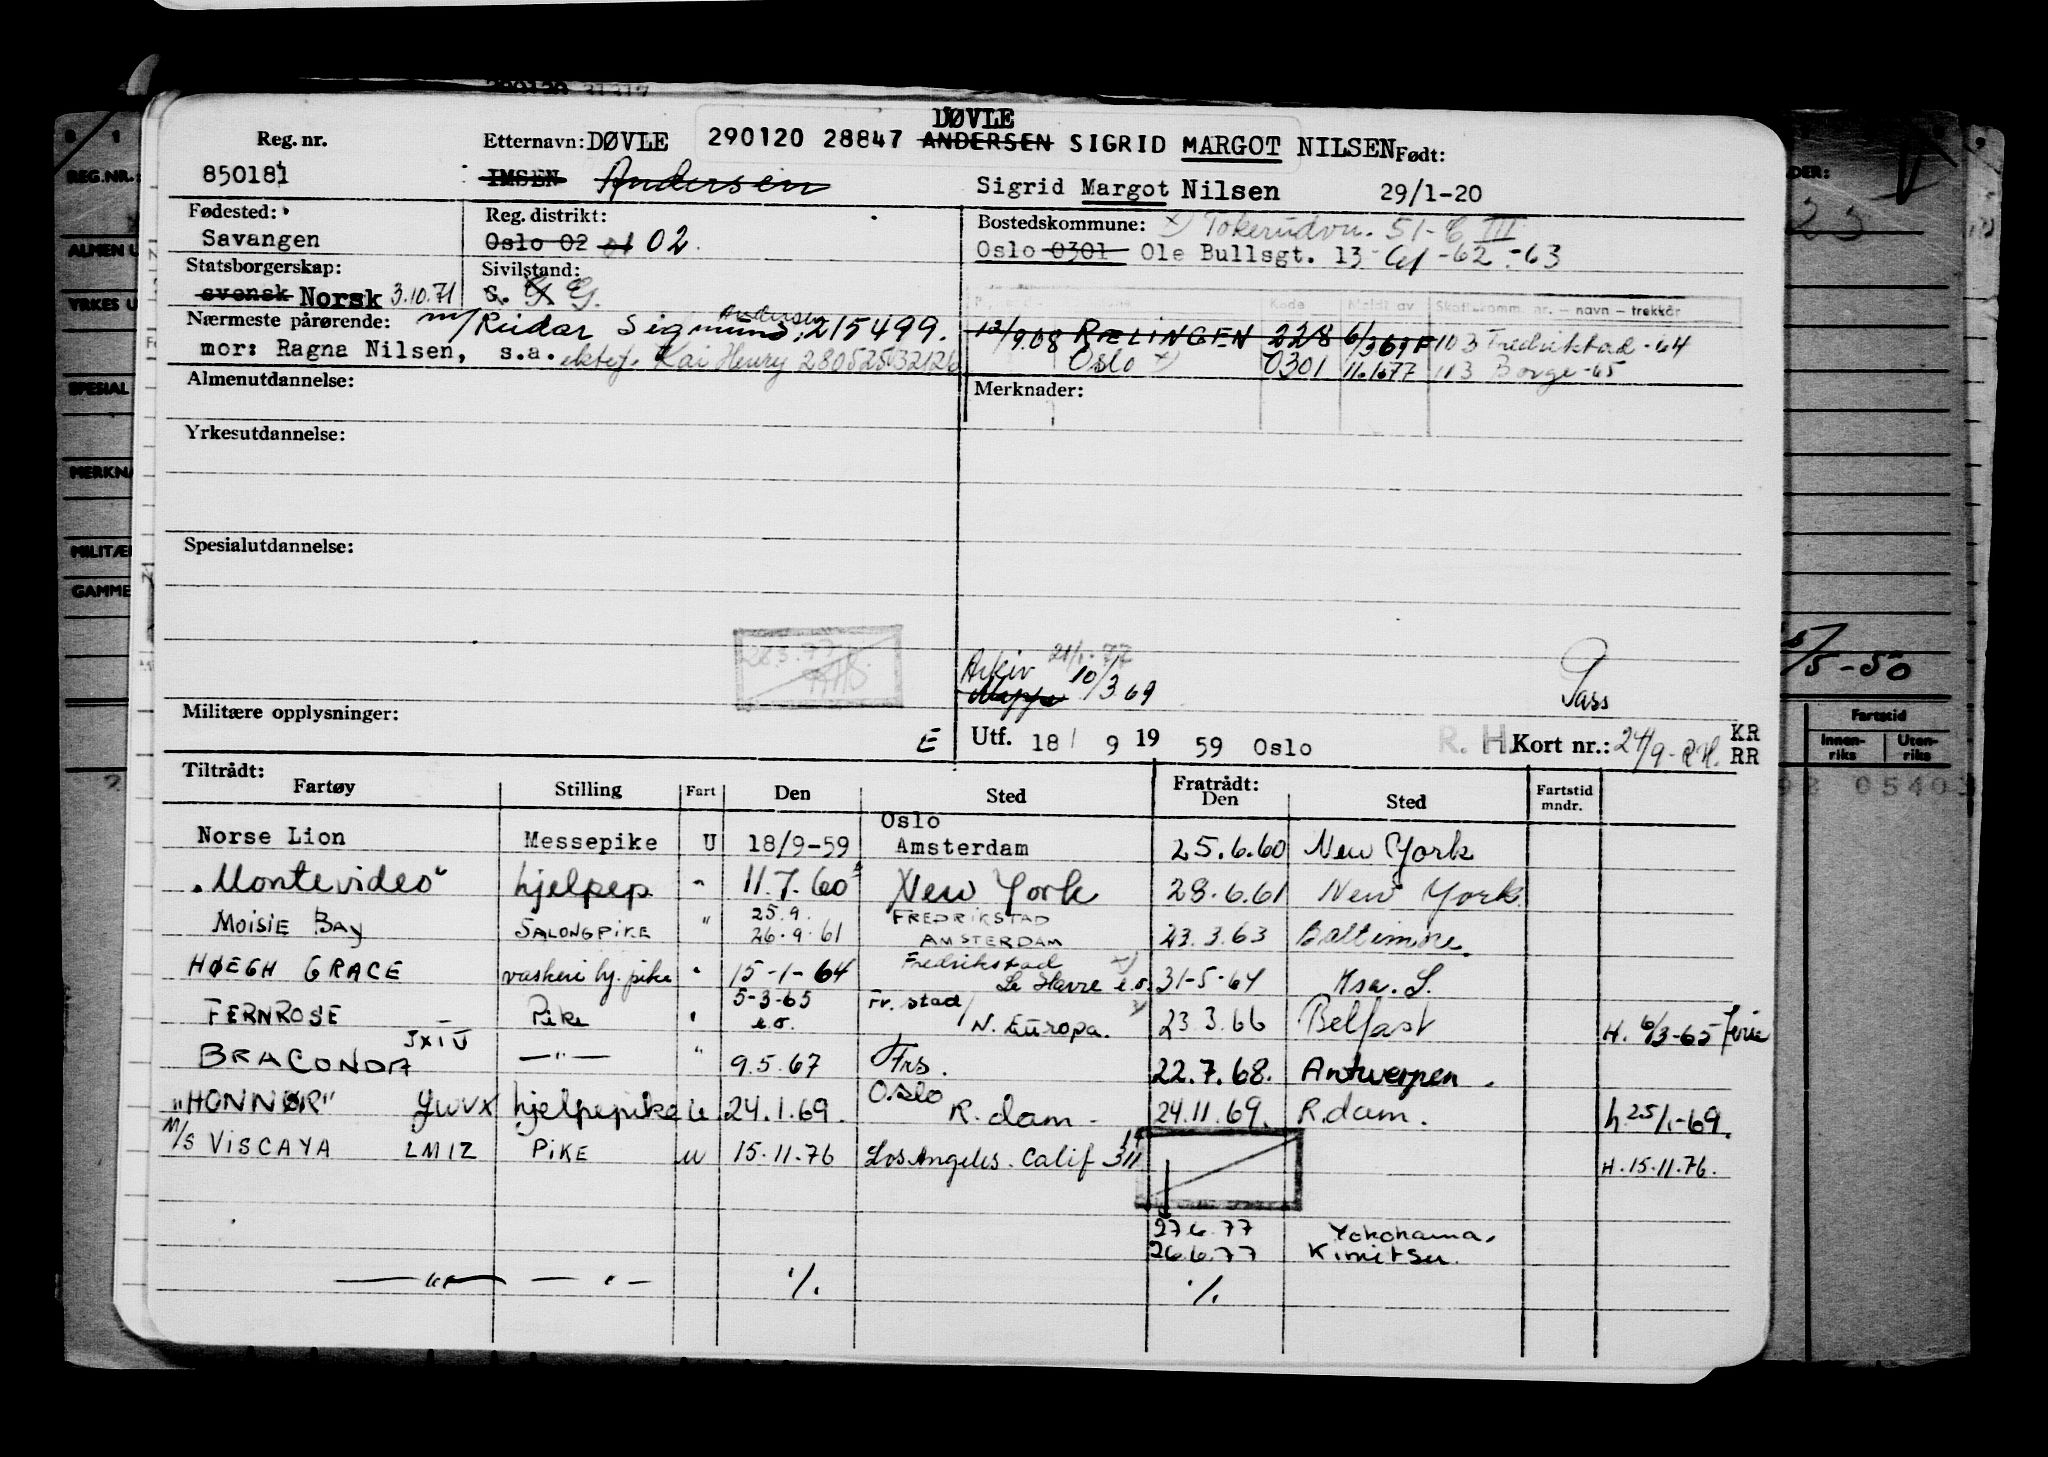 DØVLE
Reg. nr. Etternavn: DØVLE 290120 28847 ANDERSEN SIGRID MARGOT NILSEN Født:
850181 IMSEN Andersen Sigrid Margot Nilsen 29/1-20
Fødested: Reg. distrikt: Bostedskommune: x) Tokerudvn. 51-C III
Savangen Oslo 02 02. Oslo 0301 Ole Bullsgt. 13 -61 -62 -63
Statsborgerskap: Sivilstand:
svensk Norsk 3.10.71 s. G. G.
Nærmeste pårørende: m/ Reidar Sigmund Andersen, 215499. 12/9.08 RÆLINGEN 228 6/3 69 F 103 Fredrikstad -64
mor: Ragna Nilsen, s.a. ektef. Kai Henry 280525 32126 Oslo x) 0301 11.1.77 113 Borge -65
Almenutdannelse: Merknader:
Yrkesutdannelse:
Spesialutdannelse:
28.3.77
Arkiv 21/1-77
Mappe 10/3 69 Pass
Militære opplysninger: E Utf. 18/ 9 19 59 Oslo R. H. Kort nr.: 24/9-R.H. KR
RR
Tiltrådt: Fratrådt:
Fartøy Stilling Fart Den Sted Den Sted Fartstid mndr.
Oslo
Norse Lion Messepike U 18/9-59 Amsterdam 25.6.60 New York
"Montevideo" hjelpep. " 11.7.60 New York 28.6.61 New York
25.9. FREDRIKSTAD
Moisie Bay SALONGPIKE " 26.9.61 AMSTERDAM 23.3.63 Baltimore.
Fredrikstad x)
HØEGH GRACE vaskeri hj. pike " 15-1-64 Le Havre e.o. 31-5-64
5-3-65 Fr.stad/
FERNROSE Pike " e.o. N. Europa. 23.3.66 Belfast H. 6/3-65 ferie
BRACONDA JXIV —"— " 9.5.67 Frs. 22.7.68. Antwerpen.
Oslo
"HONNØR" JWVX hjelpepike U 24.1.69. R.dam. 24.11.69. R.dam. h. 25/1-69.
M/S VISCAYA LMIZ PIKE U 15.11.76 Los Angeles. Calif H. 15.11.76.
27.6.77 Yokohama.
26.6.77 Kimitsu.
—"— —"— ./. ./.
REG.NR.:
5/5-50
Fartstid
Innen-
riks
Uten-
riks